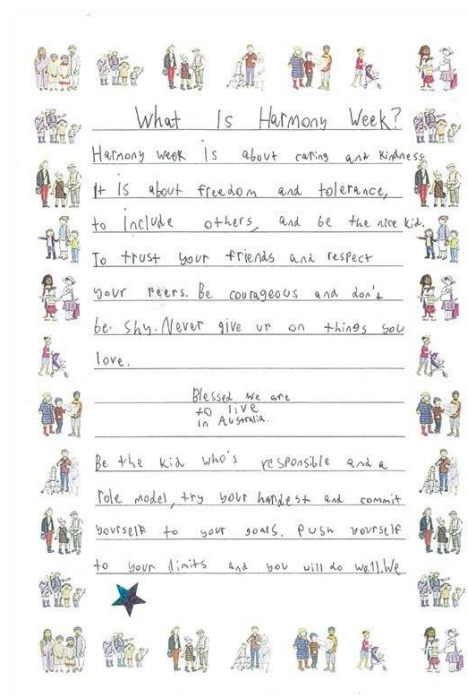 What Is Harmony Week?
Harmony week is about caring and kindness
It is about freedom and tolerance,
to include others, and be the nice kid.
To trust your friends and respect
your peers. Be courageous and don't
be shy. Never give up on things you
love.
Blessed we are
to live
in Australia.
Be the kid who's responsible and a
role model, try your hardest and commit
yourself to your goals. Push yourself
to your limits and you will do well. We